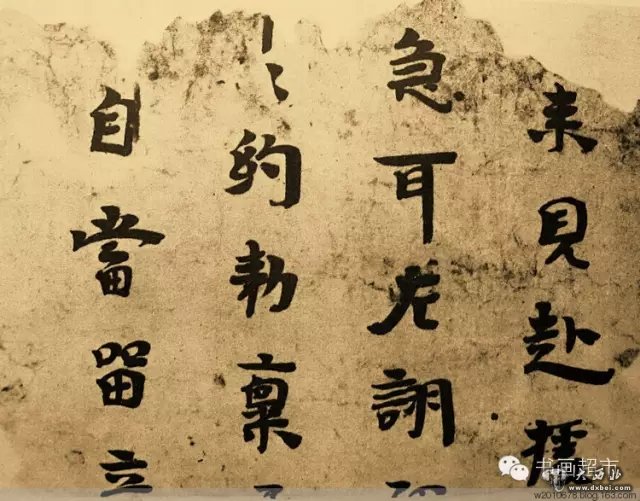 来見赴
急耳尨詡
約勑稟
自當留立
书画超市
www.dxbei.com
w2010678.blog.163.com